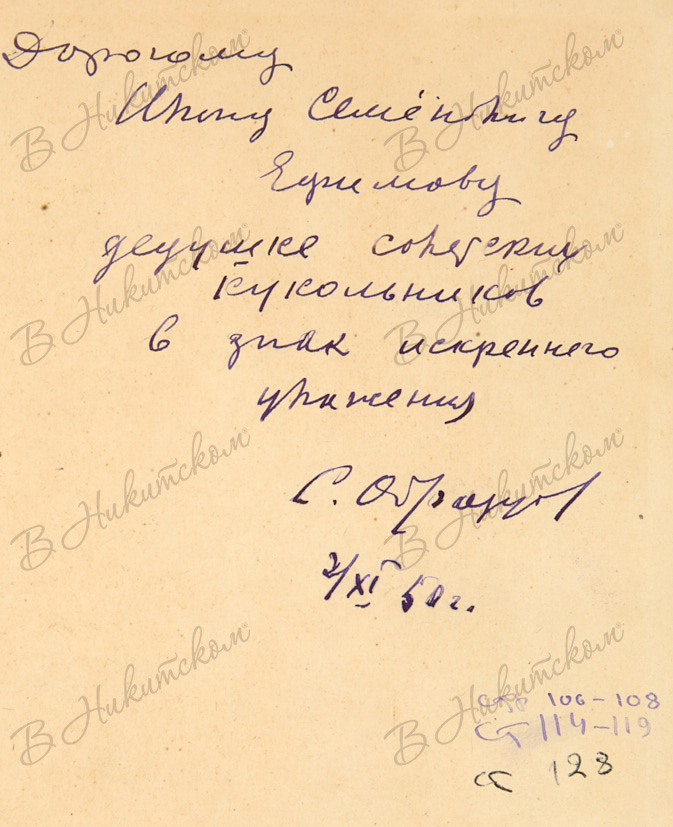 Дорогому
Ивану Семёновичу
Ефимову
дедушке советских
кукольников
в знак искреннего
уважения
С. Образцов
2/XI 50 г.
стр 106-108
ст 114-119
ст 128
В Никитском